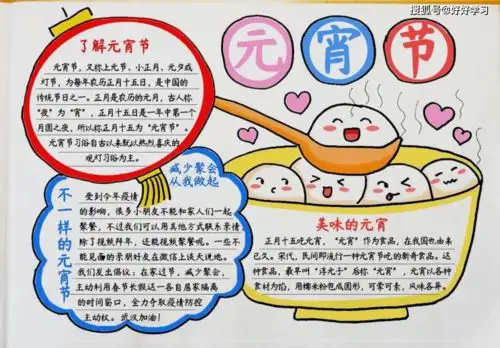 搜狐号@好好学习
元宵节
了解元宵节
元宵节，又称上元节、小正月、元夕或
灯节，为每年农历正月十五日，是中国的
传统节日之一。正月是农历的元月，古人称
“夜”为“宵”，正月十五日是一年中第一个
月圆之夜，所以称正月十五为“元宵节”。
元宵节习俗自古以来就以热烈喜庆的
观灯习俗为主。
减少聚会
从我做起
不一样的元宵节
受到今年疫情
的影响，很多小朋友不能和家人们一起
聚餐，不过我们可以用其他方式联系亲情，
除了视频拜年，还能视频聚餐呢。一些不
能见面的亲朋好友在微信上谈天说地。
我们发出倡议：在家过节，减少聚会，
主动利用春节长假这一各自居家隔离
的时间窗口，全力夺取疫情防控
主动权。武汉加油！
美味的元宵
正月十五吃元宵，“元宵”作为食品，在我国也由来
已久。宋代，民间即流行一种元宵节吃的新奇食品。这
种食品，最早叫“浮元子”后称“元宵”，元宵以各种
食材为馅，用糯米粉包成圆形，可荤可素，风味各异。